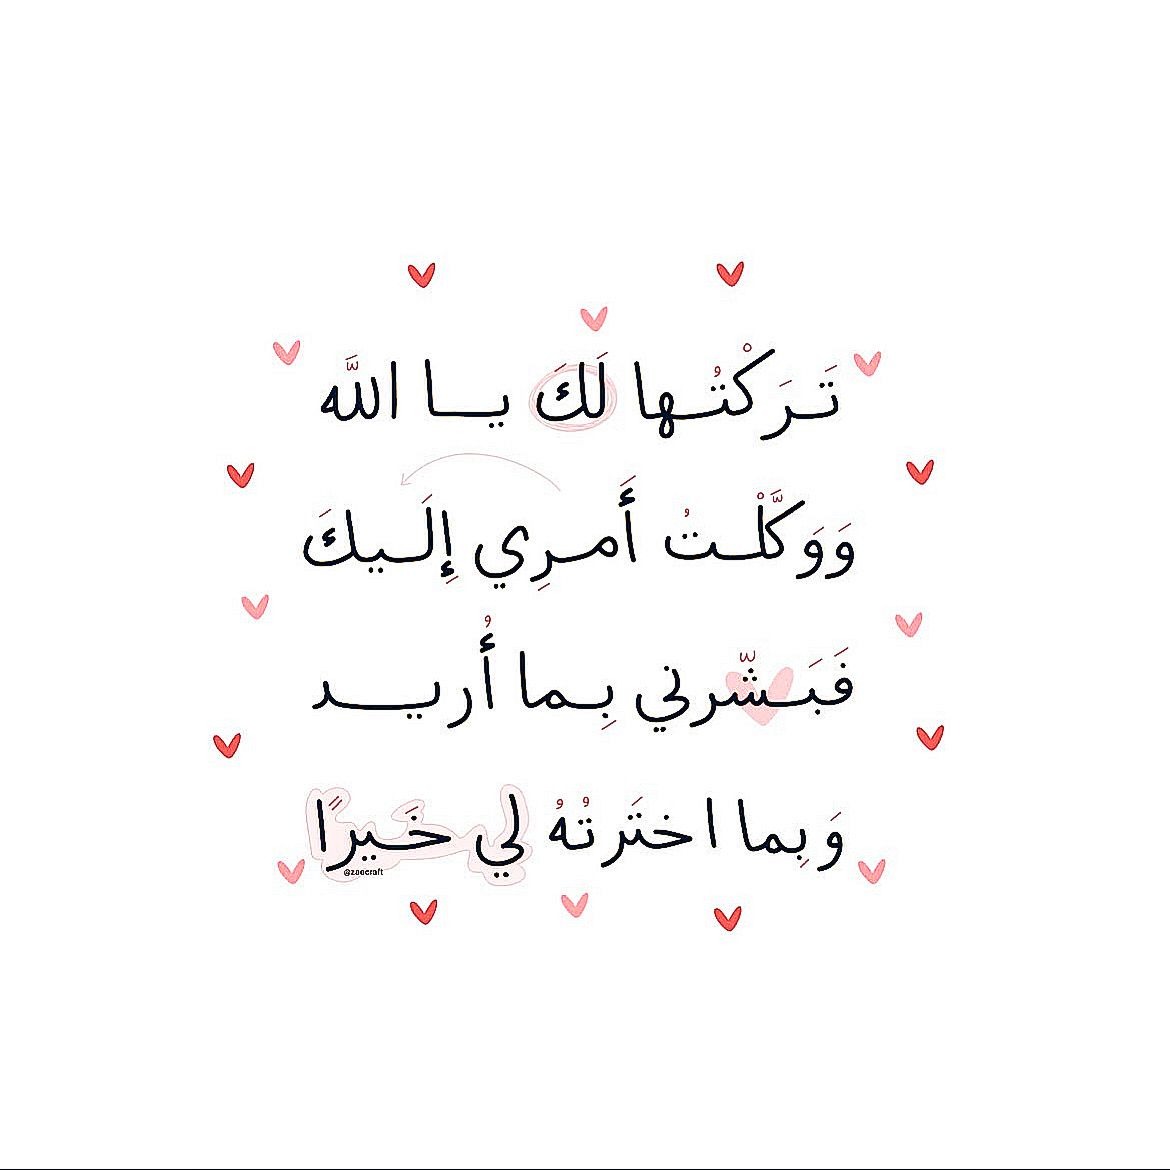 تَـرَكْتُـها لَكَ يــا اللَّه
وَوَكَّلْـتُ أَمـرِي إِلَـيكَ
فَبَـشّرني بِـما أُريــد
وَبِما اختَرتُهُ لي خَـيرًا
@zoecraft